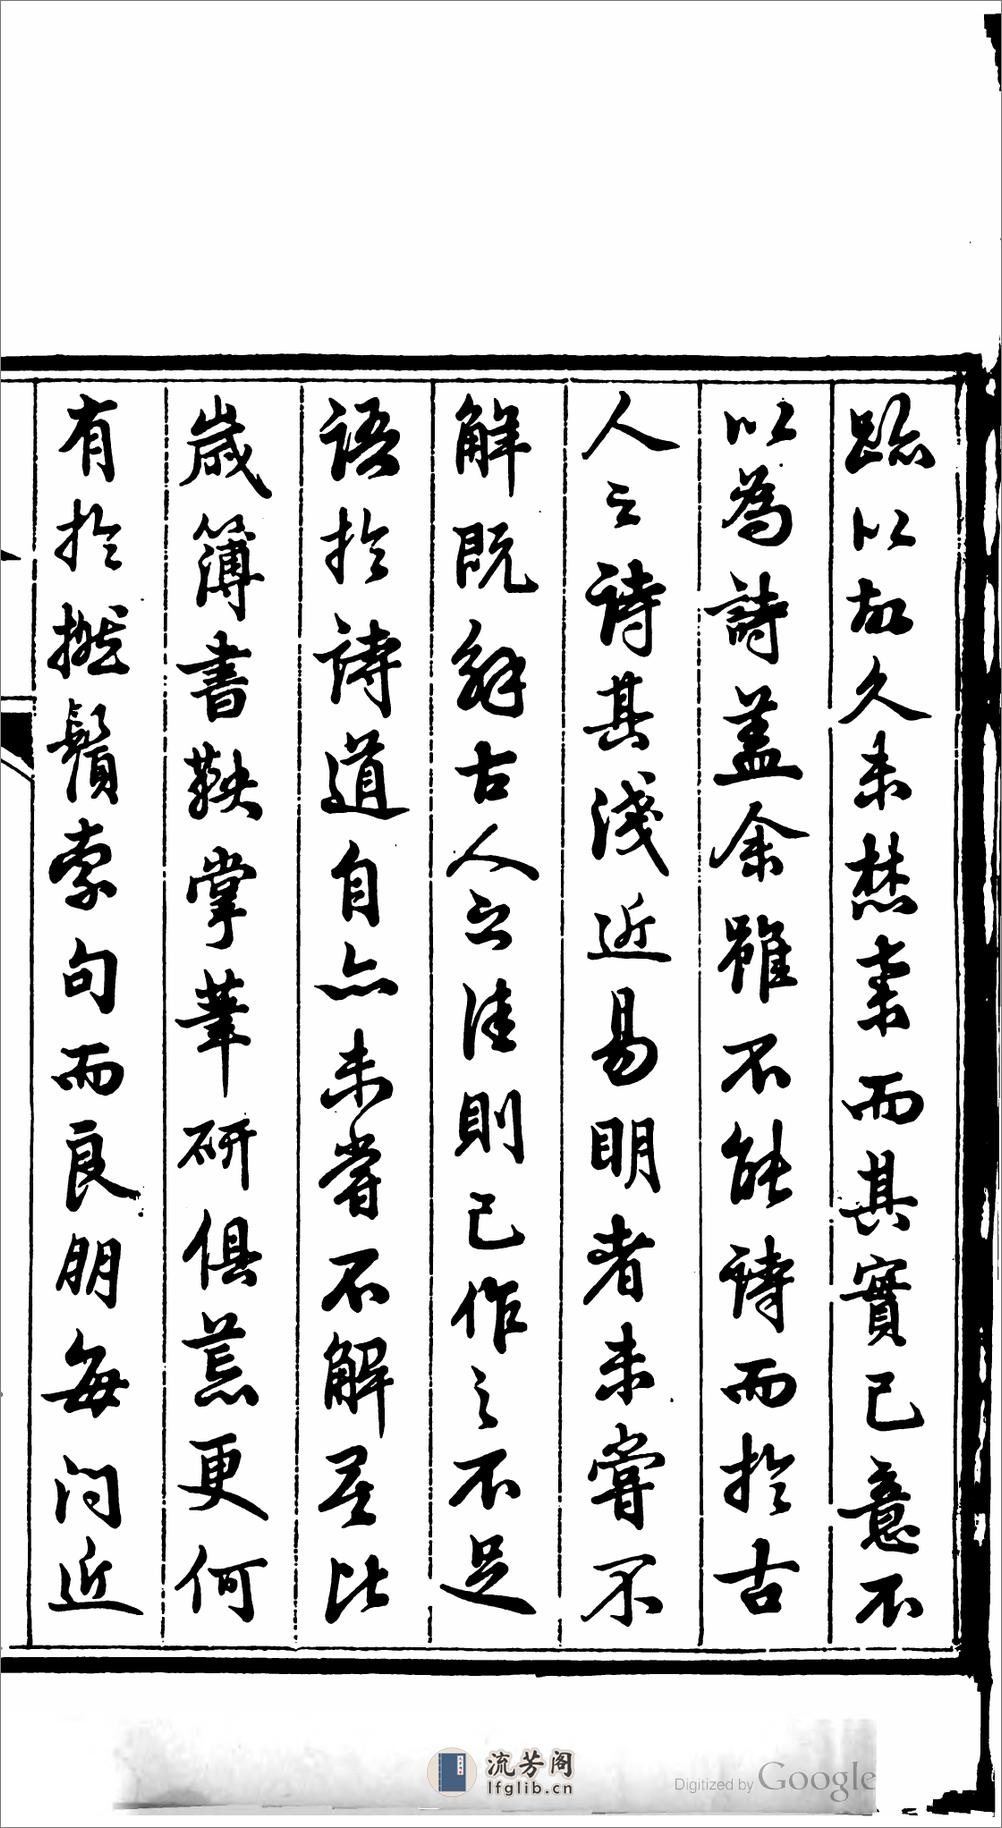 以故久未焚棄而其實已意不
以為詩蓋余雖不能詩而於古
人之詩其淺近易明者未嘗不
解既解古人之佳則已作之不足
語於詩道自亦未嘗不解矣比
歲簿書鞅掌筆研俱荒更何
有於撚鬚索句而良朋每问近
流芳阁
lfglib.cn
Digitized by Google